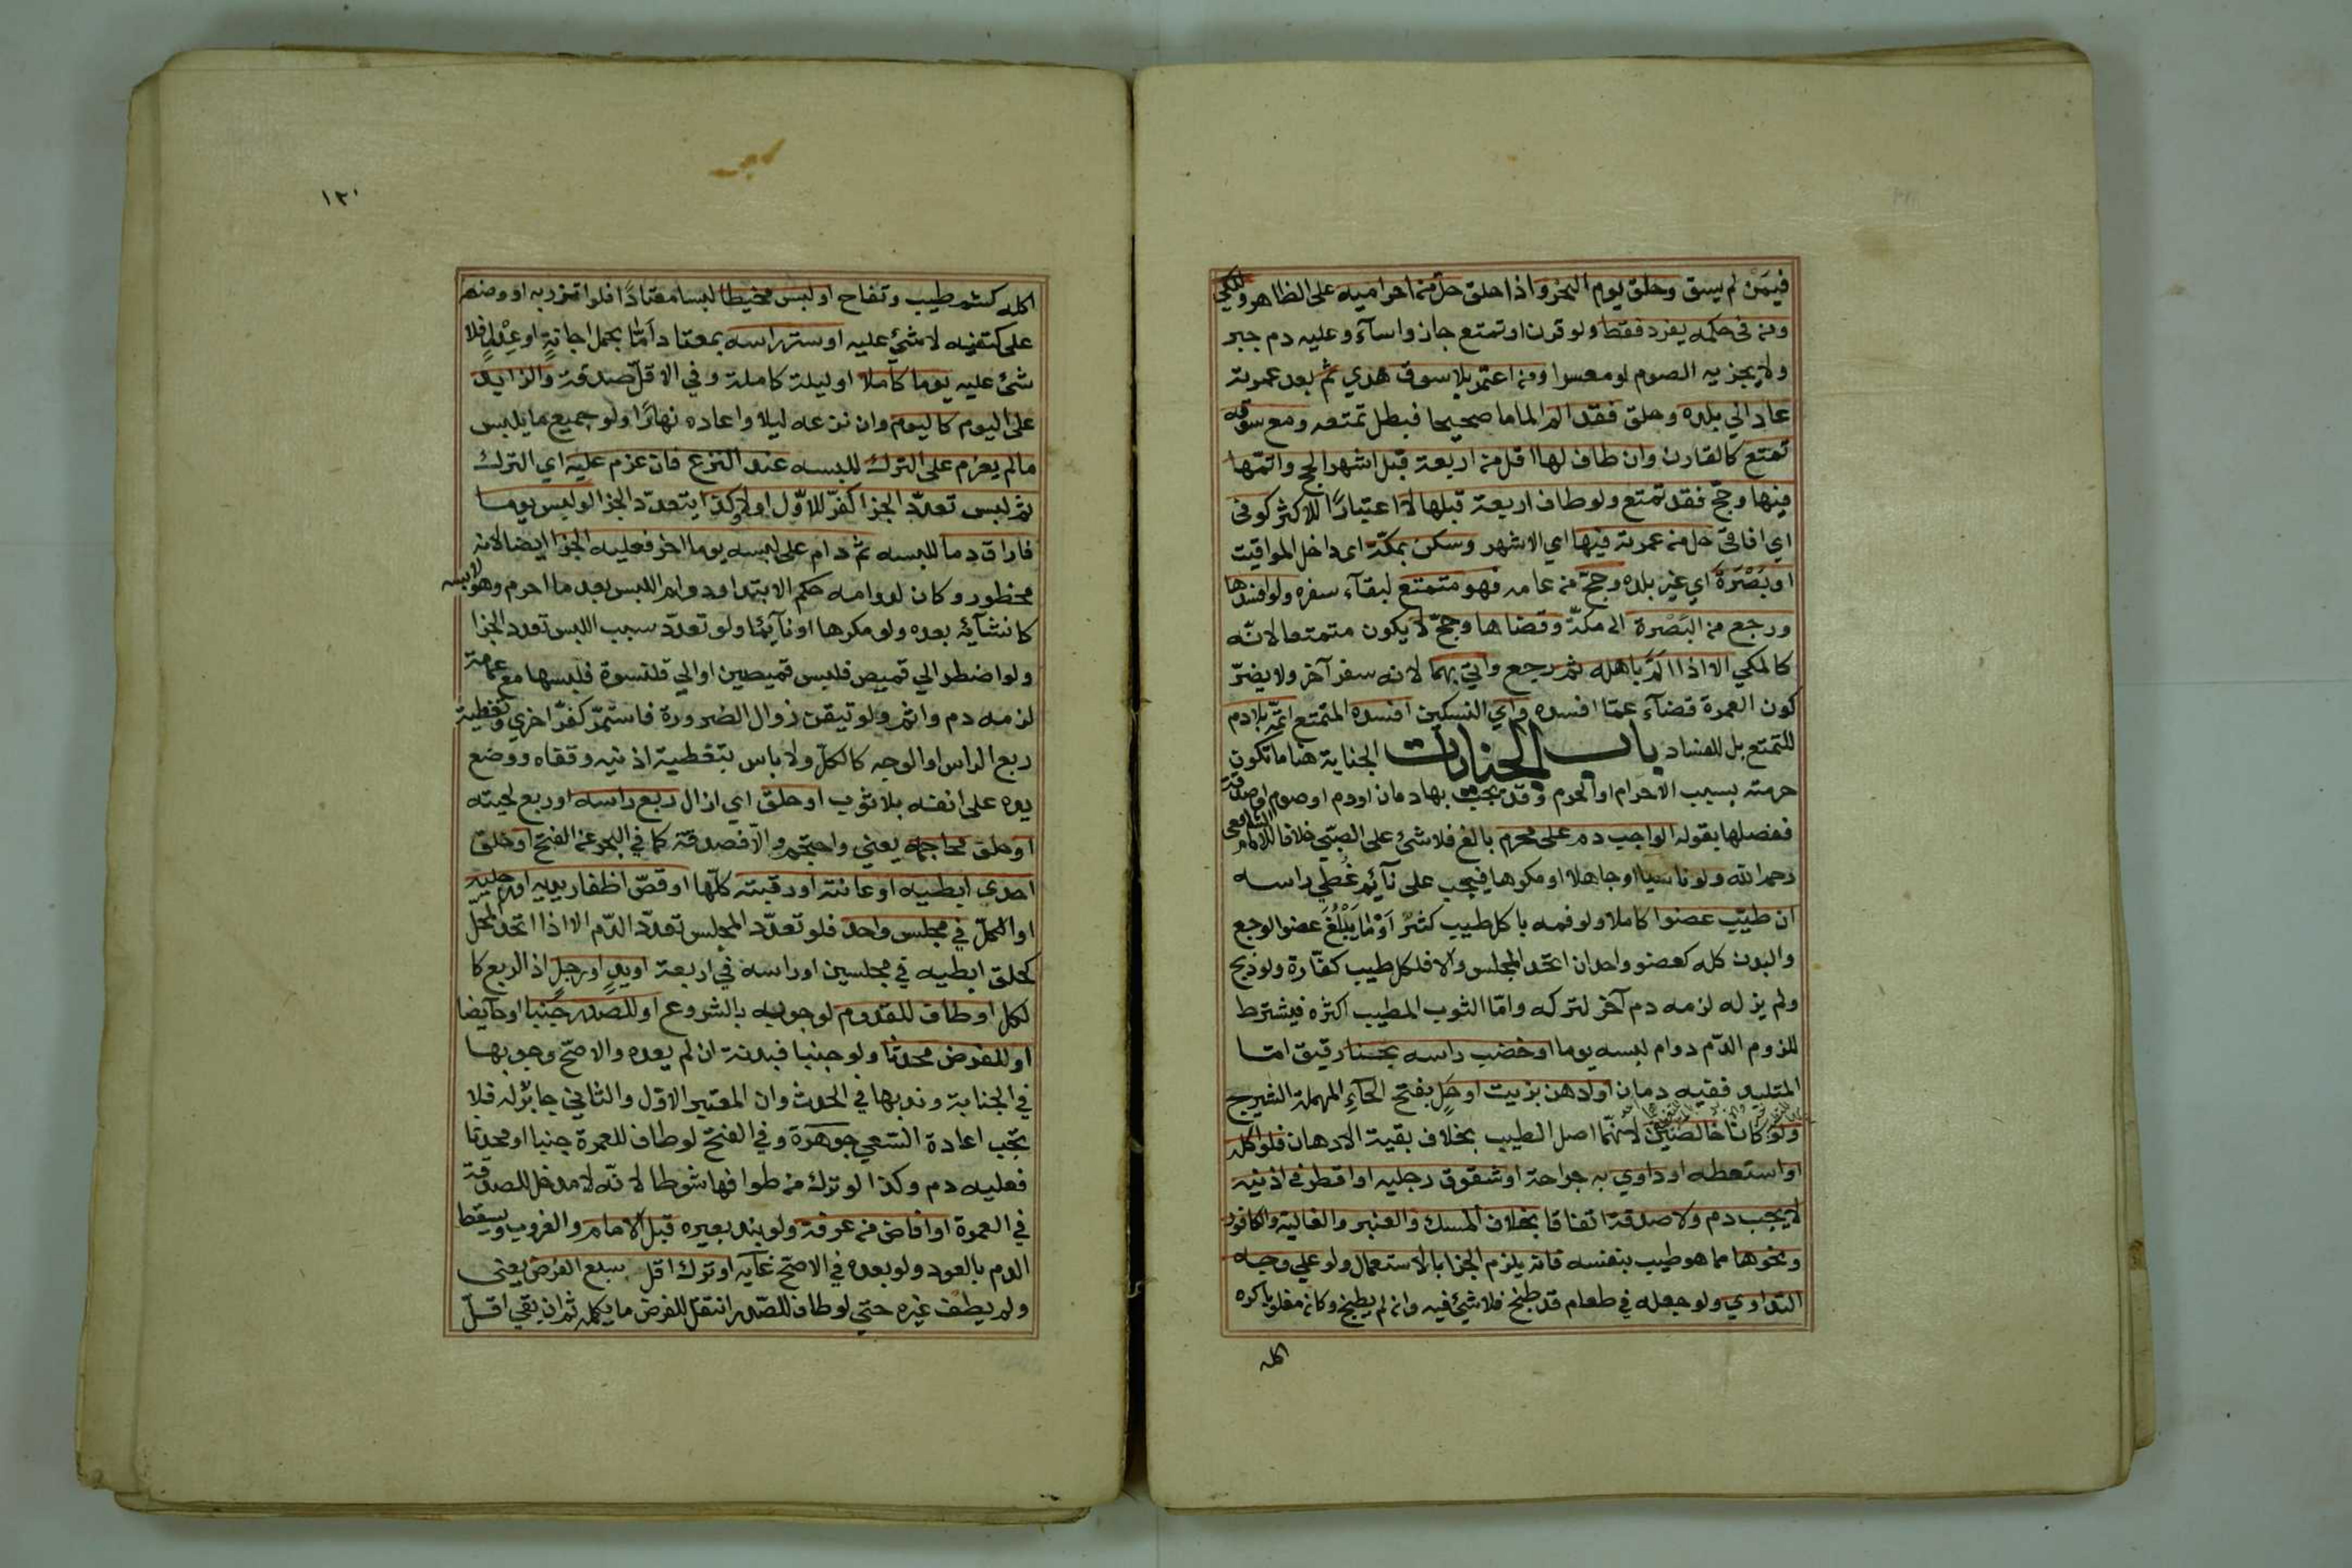 فيمَنْ لم يسق وحلق يوم النحر واذا حلق حل من احراميه على الظاهر والمكي
ومن في حكمه يفرد فقط ولو قرن او تمتع جاز واساء وعليه دم جبر
ولا يجزيه الصوم لو معسرا ومن اعتمر بلا سوق هدي ثم بعد عمرته
عاد الي بلده وحلق فقد الم الماما صحيحا فبطل تمتعه ومع سوقه
تمتع كالقارن وان طاف لها اقل من اربعة قبل اشهر الحج واتمّها
فيها وحجّ فقد تمتع ولو طاف اربعة قبلها لا اعتبارًا للاكثر كوفى
اي افاقى حل من عمرته فيها اي الاشهر وسكن بمكّة اى داخل المواقيت
او بَصْرَةَ اي غير بلده وحجّ من عامه فهو متمتع لبقآء سفره ولو افسدها
ورجع من البَصْرة الى مكّة وقضاها وحجّ لا يكون متمتعا لانّه
كالمكي الا اذا اَلَمَّ باهله ثم رجع واتي بهما لانه سفر آخر ولا يضرّ
كون العمرة قضآء عمّا افسده واي النسكين افسده المتمتع اتمّه بلا دم
للتمتع بل للفساد باب الجنايات الجناية هنا ما تكون
حرمته بسبب الاحرام او الحرم وقد يجب بها دمان او دم او صوم او صدقة
ففصلها بقوله الواجب دم على محرم بالغ فلا شئ على الصبّي خلافا للامام الشافعى
رحمه الله ولو ناسيا او جاهلا او مكرها فيجب على نآئم غُطِّي راسه
ان طيّب عضوا كاملا ولو فمه باكل طيب كثير اَوْ مَا يَبْلُغُ عضوا لو جمع
والبدن كله كعضو واحد ان اتحد المجلس والا فلكل طيب كفّارة ولو ذبح
ولم يزله لزمه دم آخر لتركه وامّا الثوب المطيب اكثره فيشترط
للزوم الدّم دوام لبسه يوما او خضب راسه بحنا رقيق امّا
المتلبد ففيه دمان او ادهن بزيت او حَلٍّ بفتح الحآءِ المهملة الشيرج
ولو كانا خالصَيْن لانهّما اصل الطيب بخلاف بقية الادهان فلو اكله
او استعطه او داوي به جراحة او شقوق رجليه او اقطر في اذنيه
لا يجب دم ولا صدقة اتفاقا بخلاف المسك والعنبر والغالية والكافور
ونحوها مما هو طيب بنفسه فانه يلزم الجزا بالاستعمال ولو علي وجه
التداوي ولو جعله في طعام قد طبخ فلا شئ فيه وان لم يطبخ وكان مغلوبا كره
اكله
١٣٠
اكله كشم طيب وتفاح او لبس مخيطا لبسا معتادًا فلو اتزر به او وضعه
على كتفيه لا شئ عليه او ستر راسه بمعتاد امّا بحمل اجانةٍ او عِدْلٍ فلا
شئ عليه يوما كاملا او ليلة كاملة وفي الاقل صدقة والزايد
على اليوم كاليوم وان نزعه ليلا واعاده نهارًا ولو جميع ما يلبس
مالم يعزم على الترك للبسه عند النزع فان عزم عليه اي الترك
ثم لبس تعدّد الجزا كفّر للاوّل اولا وكذا يتعدّد الجزا لو لبس يوما
فاراق دما للبسه ثم دام على لبسه يوما اخر فعليه الجزا ايضا لانه
محظور وكان لدوامه حكم الابتدا ودوام اللبس بعد ما احرم وهو لابسه
كانشآئه بعده ولو مكرها او نآئما ولو تعدّد سبب اللبس تعدد الجزا
ولو اضطر الي قميص فلبس قميصين او الي قلنسوة فلبسها مع عمامة
لزمه دم واثم ولو تيقن زوال الضرورة فاستمرّ كفّر اخري وتغطية
ربع الراس او الوجه كالكلّ ولا باس بتغطية اذنيه وقفاه ووضع
يده على انفه بلا ثوب او حلق اي ازال ربع راسه او ربع لحيته
او حلق محاجمه يعني واحتجم والّا فصدقة كما في البحر عن الفتح او حلق
احدي ابطيه او عانته او رقبته كلّها او قصّ اظفار يديه او رجليه
او الكلّ في مجلس واحد فلو تعدّد المجلس تعدّد الدّم الا اذا اتحد المحل
كحلق ابطيه في مجلسين او راسه في اربعة او يدٍ او رجلٍ اذ الربع كا
لكل او طاف للقدوم لوجوبه بالشروع او للصدر جُنبا او حآيضا
او للفرض محدثا ولو جنبا فبدنة ان لم يعده والاصحّ وجوبها
في الجنابة وندبها في الحدث وان المعتبر الاوّل والثاني جابر له فلا
تجب اعادة السّعي جوهرة وفي الفتح لو طاف للعمرة جنبا او محدثا
فعليه دم وكذا لو ترك من طوافها شوطا لانّه لا مدخل للصدقة
في العمرة او افاض من عرفة ولو بند بعيره قبل الامام والغروب ويسقط
الدم بالعود ولو بعده في الاصحّ غآيه او ترك اقل سبع الفرض يعنى
ولم يطف غيره حتي لو طاف للصّدر انتقل للفرض ما يكمله ثم ان بقي اقلّ